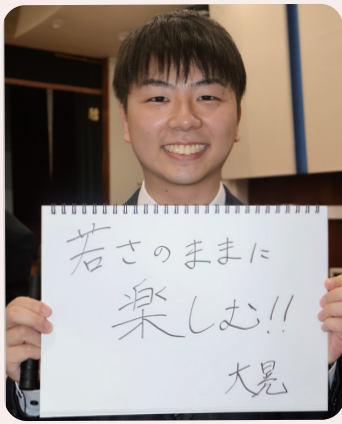 若さのままに
楽しむ!!
大晃